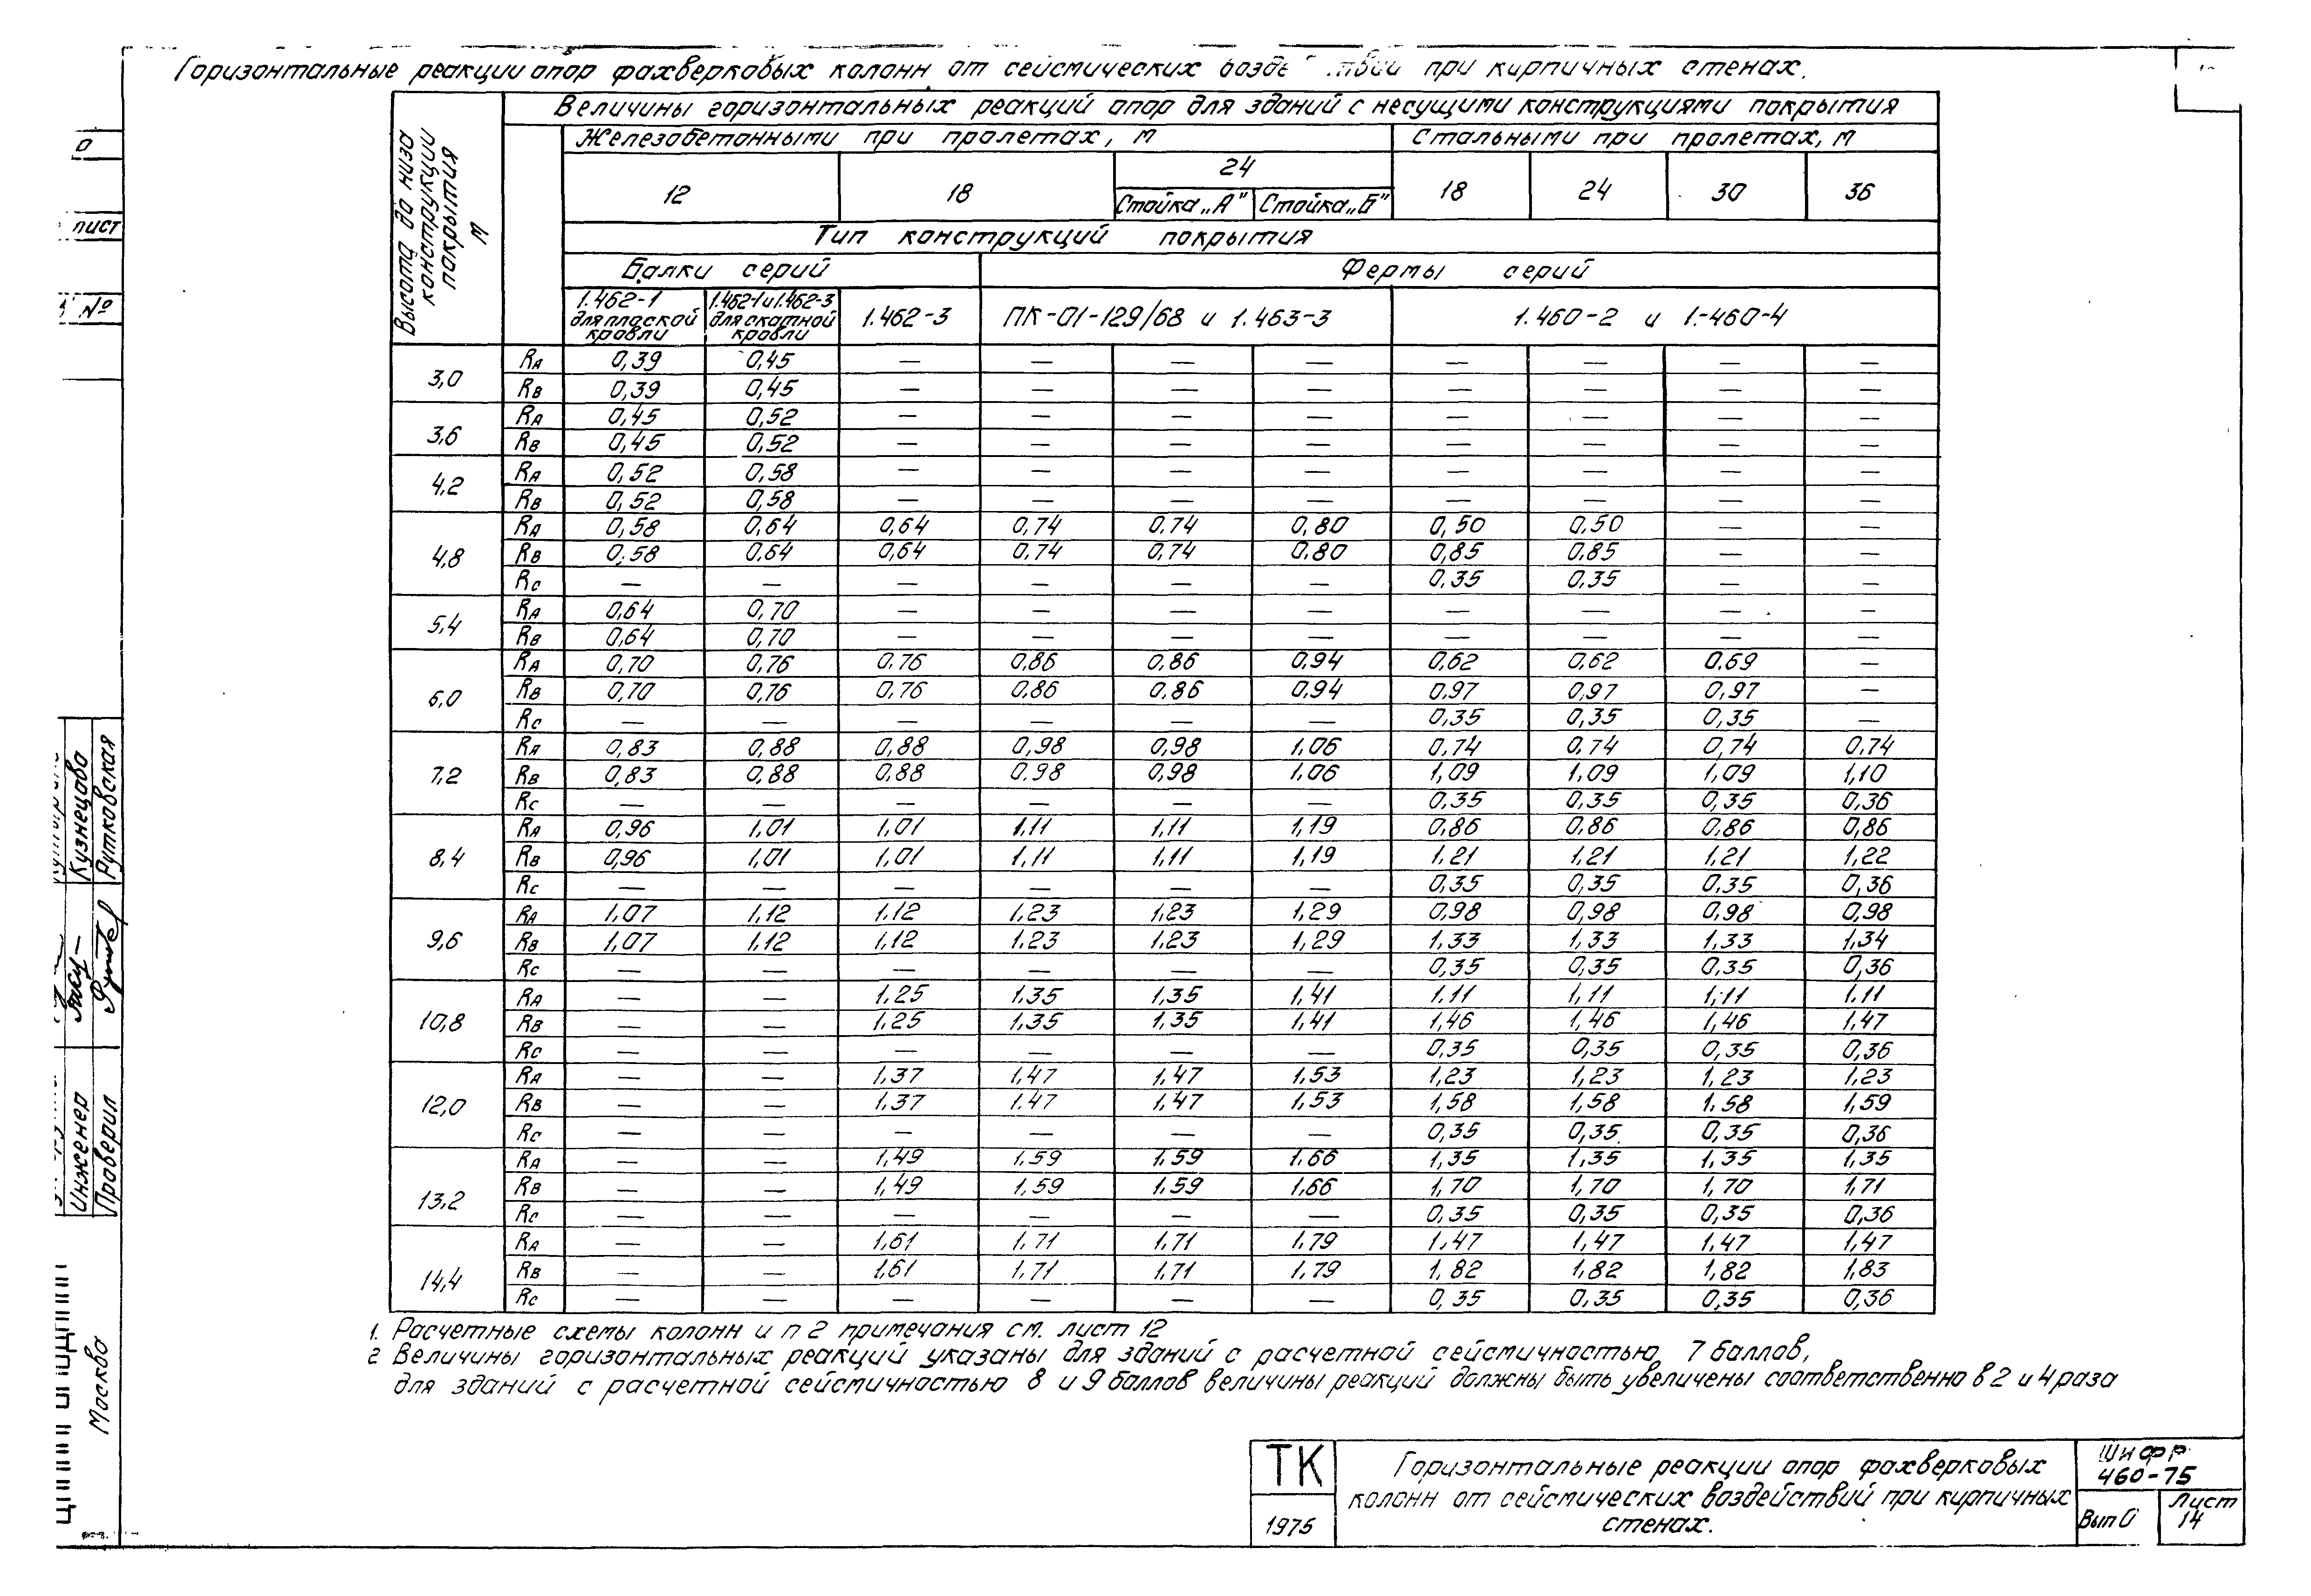 Горизонтальные реакции опор фахверковых колонн от сейсмических при кирпичных стенах.
Высота до низа конструкции покрытия м
Величины горизонтальных реакций опор для зданий с несущими конструкциями покрытия
Железобетонными при пролетах, м Стальными при пролетах, м
12 18 24 18 24 30 36
Стойка „А" Стойка „Б"
Тип конструкций покрытия
Балки серий Фермы серий
1.462-1 для плоской кровли 1.462-1 и 1.462-3 для скатной кровли 1.462-3 ПК-01-129/68 и 1.463-3 1.460-2 и 1.-460-4
3,0 RА 0,39 0,45 — — — — — — — —
RВ 0,39 0,45 — — — — — — — —
3,6 RА 0,45 0,52 — — — — — — — —
RВ 0,45 0,52 — — — — — — — —
4,2 RА 0,52 0,58 — — — — — — — —
RВ 0,52 0,58 — — — — — — — —
4,8 RА 0,58 0,64 0,64 0,74 0,74 0,80 0,50 0,50 — —
RВ 0,58 0,64 0,64 0,74 0,74 0,80 0,85 0,85 — —
RС — — — — — — 0,35 0,35 — —
5,4 RА 0,64 0,70 — — — — — — — —
RВ 0,64 0,70 — — — — — — — —
6,0 RА 0,70 0,76 0,76 0,86 0,86 0,94 0,62 0,62 0,69 —
RВ 0,70 0,76 0,76 0,86 0,86 0,94 0,97 0,97 0,97 —
RС — — — — — — 0,35 0,35 0,35 —
7,2 RА 0,83 0,88 0,88 0,98 0,98 1,06 0,74 0,74 0,74 0,74
RВ 0,83 0,88 0,88 0,98 0,98 1,06 1,09 1,09 1,09 1,10
RС — — — — — — 0,35 0,35 0,35 0,36
8,4 RА 0,96 1,01 1,01 1,11 1,11 1,19 0,86 0,86 0,86 0,86
RВ 0,96 1,01 1,01 1,11 1,11 1,19 1,21 1,21 1,21 1,22
RС — — — — — — 0,35 0,35 0,35 0,36
9,6 RА 1,07 1,12 1,12 1,23 1,23 1,29 0,98 0,98 0,98 0,98
RВ 1,07 1,12 1,12 1,23 1,23 1,29 1,33 1,33 1,33 1,34
RС — — — — — — 0,35 0,35 0,35 0,36
10,8 RА — — 1,25 1,35 1,35 1,41 1,11 1,11 1,11 1,11
RВ — — 1,25 1,35 1,35 1,41 1,46 1,46 1,46 1,47
RС — — — — — — 0,35 0,35 0,35 0,36
12,0 RА — — 1,37 1,47 1,47 1,53 1,23 1,23 1,23 1,23
RВ — — 1,37 1,47 1,47 1,53 1,58 1,58 1,58 1,59
RС — — — — — — 0,35 0,35 0,35 0,36
13,2 RА — — 1,49 1,59 1,59 1,66 1,35 1,35 1,35 1,35
RВ — — 1,49 1,59 1,59 1,66 1,70 1,70 1,70 1,71
RС — — — — — — 0,35 0,35 0,35 0,36
14,4 RА — — 1,61 1,71 1,71 1,79 1,47 1,47 1,47 1,47
RВ — — 1,61 1,71 1,71 1,79 1,82 1,82 1,82 1,83
RС — — — — — — 0,35 0,35 0,35 0,36
1. Расчетные схемы колонн и п 2 примечания см. лист 12
2 Величины горизонтальных реакций указаны для зданий с расчетной сейсмичностью 7 баллов,
для зданий с расчетной сейсмичностью 8 и 9 баллов величины реакций должны быть увеличены соответственно в 2 и 4 раза
ТК
1975
Горизонтальные реакции опор фахверковых
колонн от сейсмических воздействий при кирпичных
стенах.
Шифр
460-75
Вып 0
Лист
14
лист
№
Кузнецова
Рутковская
Инженер
Проверил
Москва